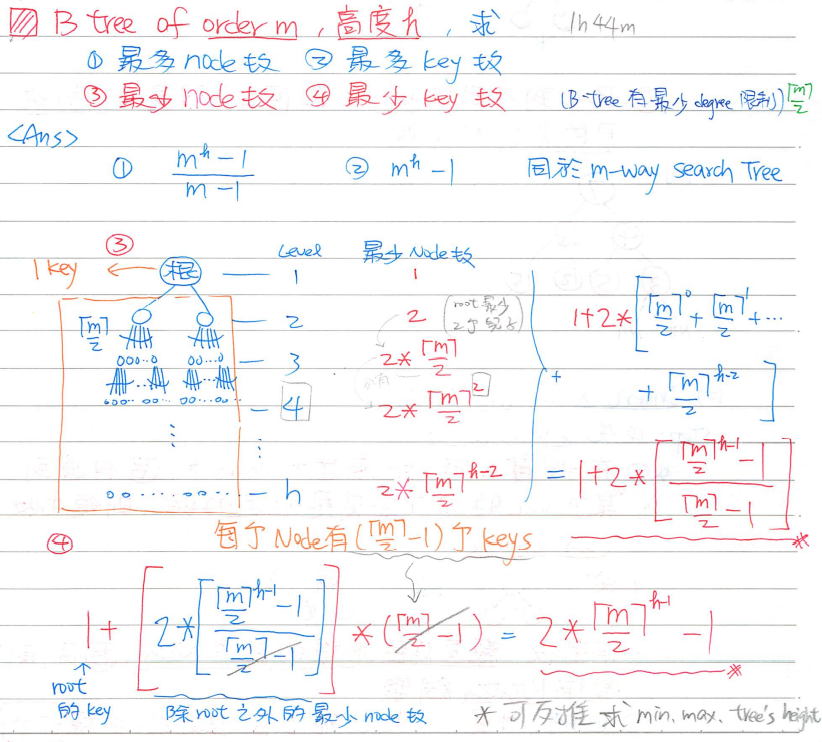 B tree of order m，高度h，求 1h44m
① 最多node數 ② 最多key數
③ 最少node數 ④ 最少key數 (B-tree有最少degree限制) ⌈m/2⌉
<Ans>
① (m^h - 1)/(m - 1) ② m^h - 1 同於 m-way search Tree
③ Level 最少Node數
1 key ← 根 — 1 1
⌈m/2⌉ — 2 2 (root最少2个兒子)
— 3 2*⌈m/2⌉
— 4 2*⌈m/2⌉^2
⋮ ⋮
— h 2*⌈m/2⌉^(h-2)
+ 1+2*[⌈m/2⌉^0 + ⌈m/2⌉^1 + ...
+ ⌈m/2⌉^(h-2)]
= 1+2*[(⌈m/2⌉^(h-1) - 1)/(⌈m/2⌉ - 1)] *
④ 每个Node有(⌈m/2⌉-1)个keys
1+[2*[(⌈m/2⌉^(h-1) - 1)/(⌈m/2⌉ - 1)]] * (⌈m/2⌉ - 1) = 2*⌈m/2⌉^(h-1) - 1 *
↑
root
的key 除root之外的最少node數 * 可反推求 min. max. tree's height